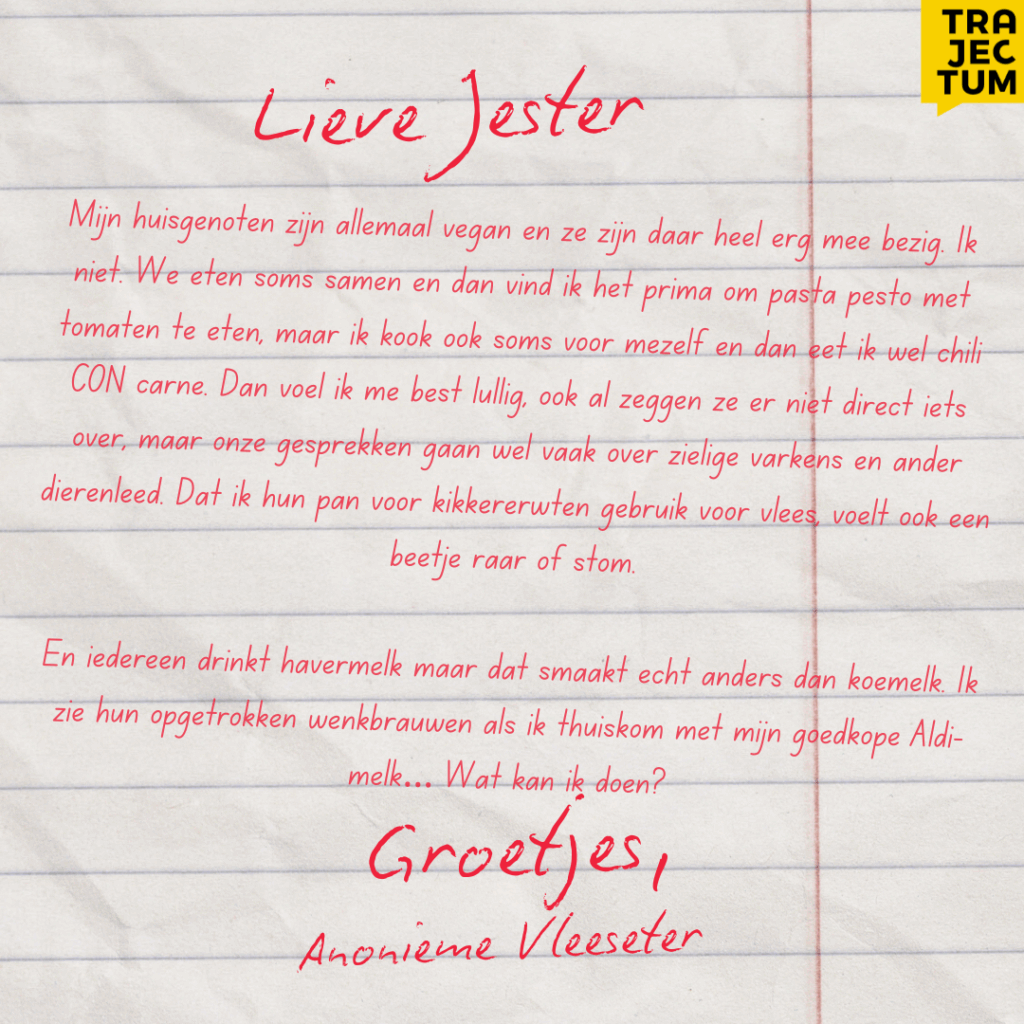 TRA
JEC
TUM
Lieve Jester
Mijn huisgenoten zijn allemaal vegan en ze zijn daar heel erg mee bezig. Ik
niet. We eten soms samen en dan vind ik het prima om pasta pesto met
tomaten te eten, maar ik kook ook soms voor mezelf en dan eet ik wel chili
CON carne. Dan voel ik me best lullig, ook al zeggen ze er niet direct iets
over, maar onze gesprekken gaan wel vaak over zielige varkens en ander
dierenleed. Dat ik hun pan voor kikkererwten gebruik voor vlees, voelt ook een
beetje raar of stom.
En iedereen drinkt havermelk maar dat smaakt echt anders dan koemelk. Ik
zie hun opgetrokken wenkbrauwen als ik thuiskom met mijn goedkope Aldi-
melk... Wat kan ik doen?
Groetjes,
Anonieme Vleeseter